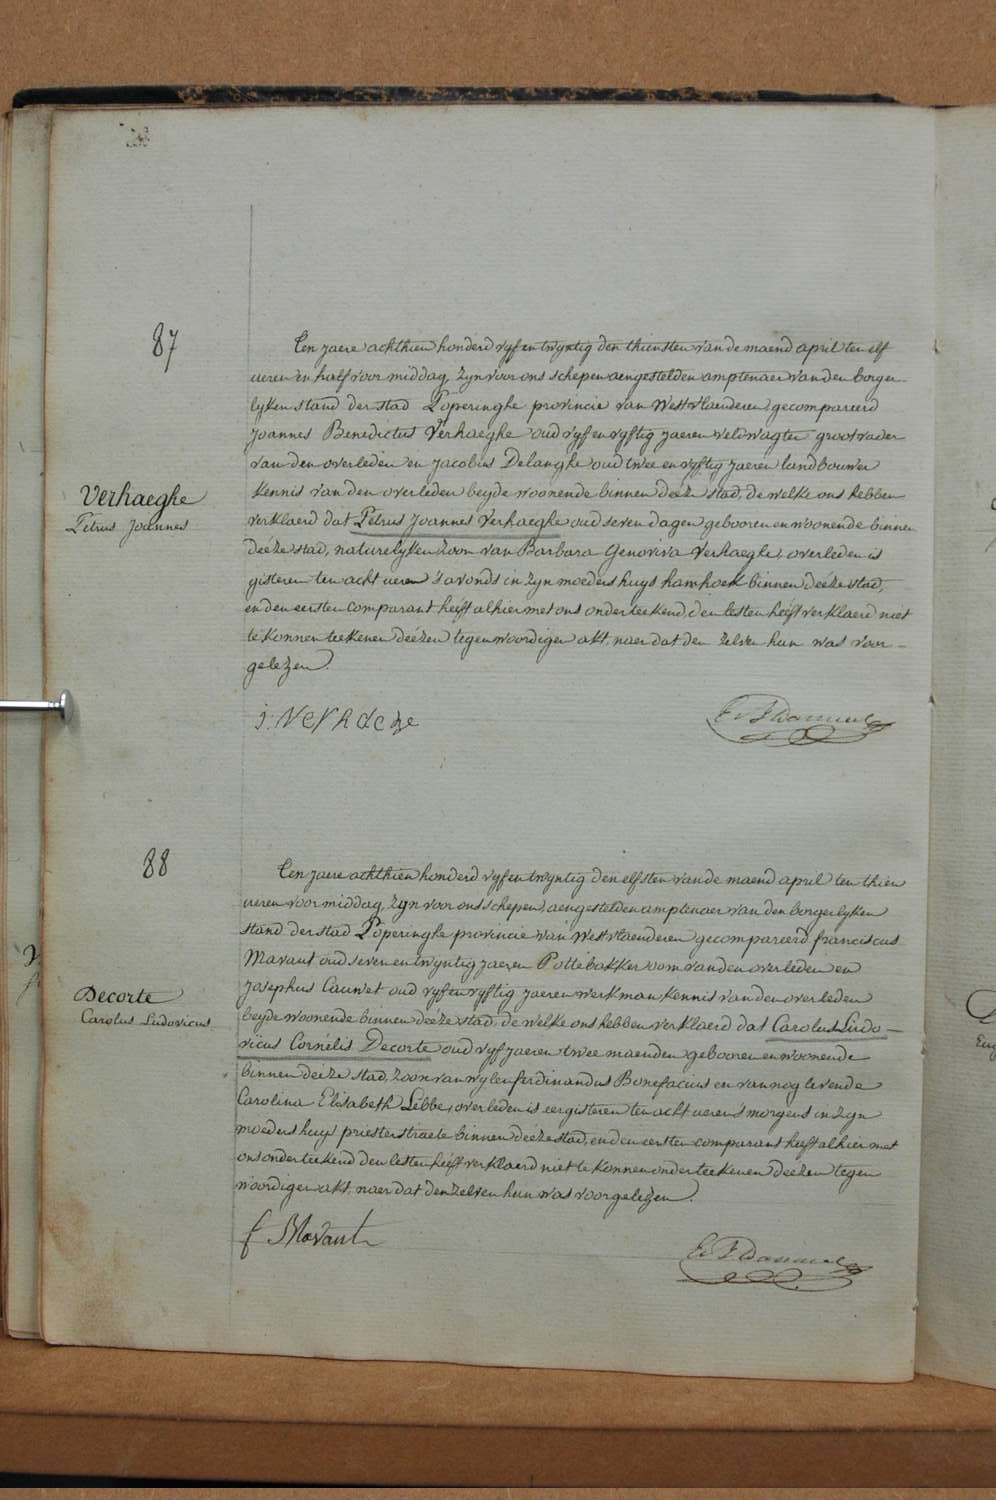 87
Verhaeghe
Petrus Joannes
Ten jaere achthien honderd vyf en twyntig den thiensten van de maend april ten elf
ueren en half voor middag, zyn voor ons schepen aengestelden amptenaer van den borger-
lyken stand der stad Poperinghe provincie van Westvlaenderen, gecompareerd
Joannes Benedictus Verhaeghe oud vyf en vyftig jaeren veldwagter grootvader
van den overleden en Jacobus Delanghe oud twee en vyftig jaeren landbouwer
kennis van den overleden beyde woonende binnen deéze stad, de welke ons hebben
verklaerd dat Petrus Joannes Verhaeghe oud seven dagen gebooren en woonende binnen
deéze stad, naturelyken zoon van Barbara Genoviva Verhaeghe, overleden is
gisteren ten acht ueren 's avonds in zyn moeders huys hamhoek binnen deéze stad,
en den eersten comparant heéft alhier met ons onderteekend, den lesten heéft verklaerd niet
te konnen teekenen deézen tegenwoordigen akt, naer dat den zelven hun was voor-
gelezen.
j. Verhaeghe
88
Decorte
Carolus Ludovicus
Ten jaere achthien honderd vyf en twyntig den elfsten van de maend april ten thien
ueren voor middag, zyn voor ons schepen, aengestelden amptenaer van den borgerlyken
stand der stad Poperinghe provincie van Westvlaenderen gecompareerd franciscus
Mavaut oud seven en twyntig jaeren Pottebakker oom van den overleden en
Josephus Cauwet oud vyf en vyftig jaeren werkman kennis van den overleden
beyde woonende binnen deéze stad, de welke ons hebben verklaerd dat Carolus Ludo-
vicus Cornelis Decorte oud vyf jaeren twee maenden gebooren en woonende
binnen deéze stad, zoon van wylen ferdinandus Bonefacius en van nog levende
Carolina Elisabeth Lebbe, overleden is eergisteren ten acht ueren 's morgens in zyn
moeders huys priesterstraete binnen deéze stad, en den eersten comparant heéft alhier met
ons onderteekend den lesten heéft verklaerd niet te konnen onderteekenen deézen tegen
woordigen akt, naer dat den zelven hun was voorgelezen.
f Mavaut